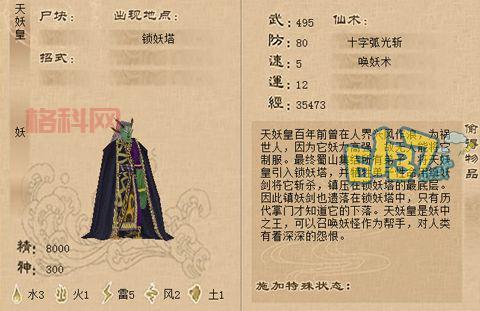 天妖皇
妖
尸块:
出现地点:
锁妖塔
招式:
格科网
精: 8000
神: 300
水3 火1 雷5 风2 土1
武: 495
防: 80
速: 5
運: 12
經: 35473
仙术:
十字弧光斩
唤妖术
偷得物品
天妖皇百年前曾在人界兴风作浪，为祸
世人，因为它妖力高强，
制服。最终蜀山集结所有弟子，将天妖
皇引入锁妖塔，并
剑将它斩余，镇压在锁妖塔的最底层。
因此镇妖剑也遗落在锁妖塔中，只有历
代掌门才知道它的下落。天妖皇是妖中
之王，可以召唤妖怪作为帮手，对人类
有着深深的怨恨。
施加特殊状态: